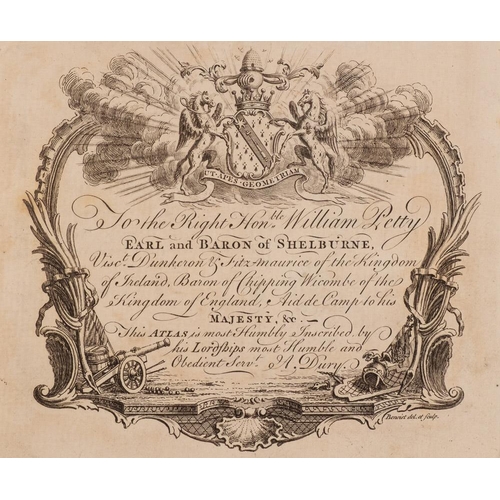 UT·APES·GEOMETRIAM
To the Right Hon.ble William Petty
EARL and BARON of SHELBURNE,
Visc.t Dunkeron & Fitz-maurice of the Kingdom
of Ireland, Baron of Chipping Wicombe of the
Kingdom of England, Aid de Camp to his
MAJESTY, &c.—
This ATLAS is most Humbly Inscribed by
his Lordships most Humble and
Obedient Serv.t A. Dury.
Benoist del. et sculp.